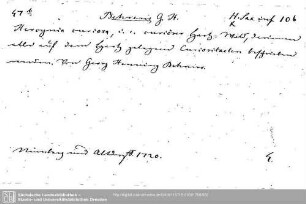 47 b Behrens G. H. H. Sax inf 106
Hercynia curiosa, i. e. curiöser Hartz-Wald, darinnen
alles auf dem Hartz gelegene Curiositaeten beschrieben
worden, von Georg Henning Behrens.
Nürnberg und Altdorff 1720.
Sächsische Landesbibliothek –
Staats- und Universitätsbibliothek Dresden